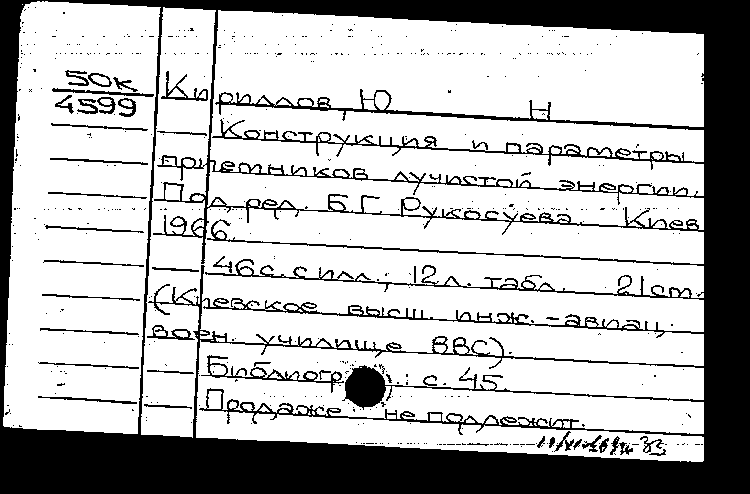 50к
4599
Кириллов, Ю Н
Конструкция и параметры
приемников лучистой энергии.
Под ред. Б.Г. Рукосуева. Киев
1966.
46с. с илл.; 12л. табл. 21см.
(Киевское высш. инж.-авиац.
воен. училище ВВС).
Библиогр.: с. 45.
Продаже не подлежит.